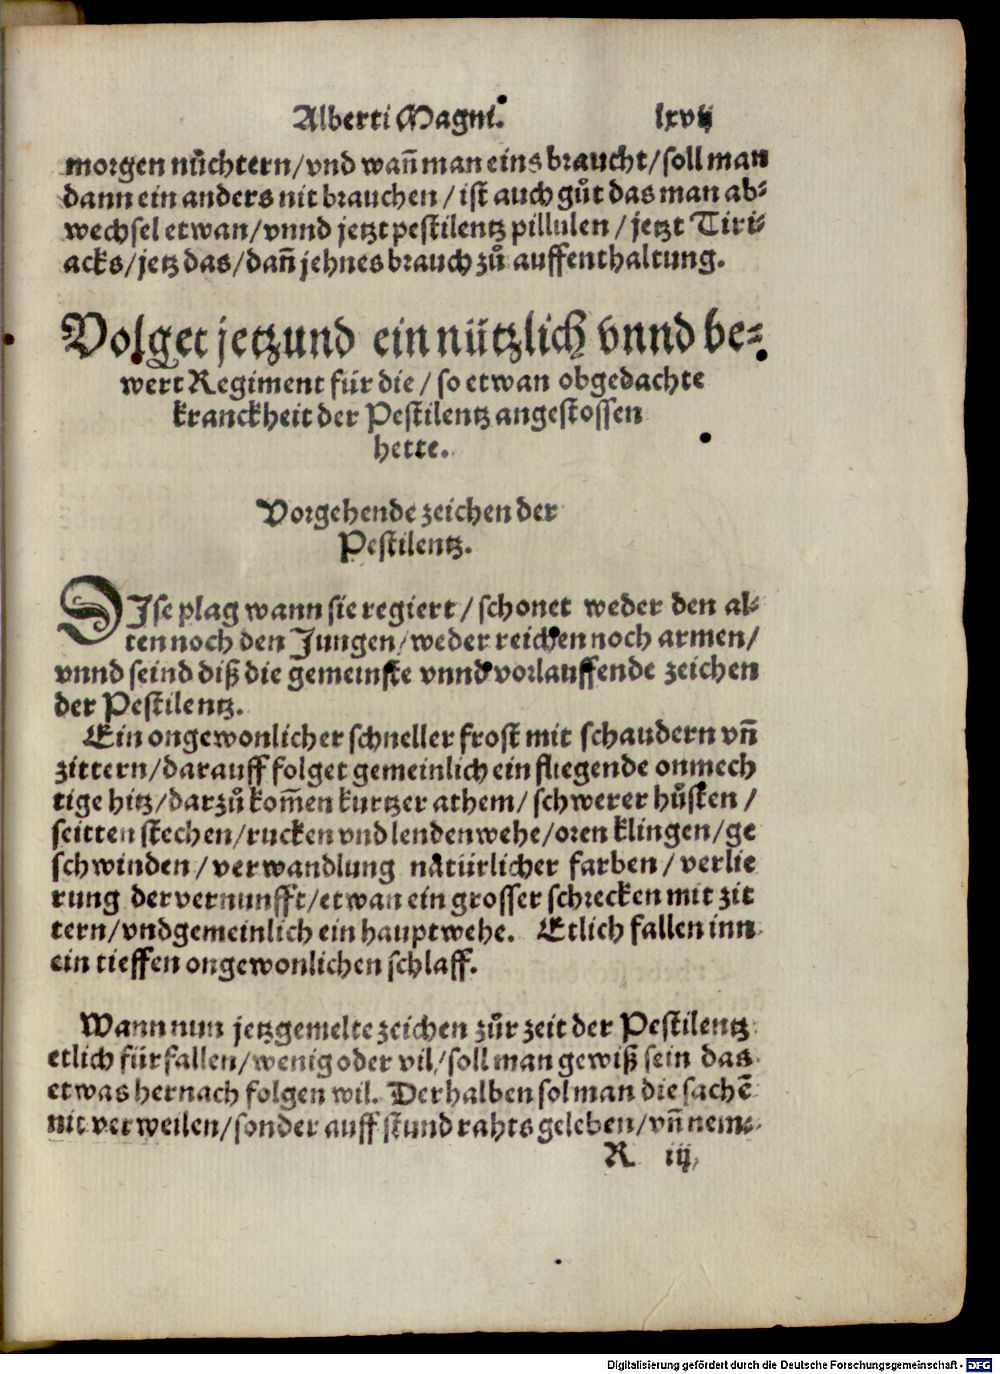 Alberti Magni. lxvij
morgen nüchtern/vnd wañ man eins braucht/soll man
dann ein anders nit brauchen/ist auch gůt das man ab⸗
wechsel etwan/vnnd jetzt pestilentz pillulen/jetzt Tiri⸗
acks/jetz das/dañ jehnes brauch zů auffenthaltung.
Volget jetzund ein nützlich vnnd be⸗
wert Regiment für die/so etwan obgedachte
kranckheit der Pestilentz angestossen
hette.
Vorgehende zeichen der
Pestilentz.
DIse plag wann sie regiert/schonet weder den al⸗
ten noch den Jungen/weder reichen noch armen/
vnnd seind diß die gemeinste vnnd vorlauffende zeichen
der Pestilentz.
Ein ongewonlicher schneller frost mit schaudern vñ
zittern/darauff folget gemeinlich ein fliegende onmech
tige hitz/darzů kom̃en kurtzer athem/schwerer hůsten/
seitten stechen/rucken vnd lendenwehe/oren klingen/ge
schwinden/verwandlung natürlicher farben/verlie
rung der vernunfft/etwan ein grosser schrecken mit zit
tern/vnd gemeinlich ein hauptwehe. Etlich fallen inn
ein tieffen ongewonlichen schlaff.
Wann nun jetzgemelte zeichen zůr zeit der Pestilentz
etlich fürfallen/wenig oder vil/soll man gewiß sein das
etwas hernach folgen wil. Derhalben sol man die sachē
nit verweilen/sonder auff stund rahts geleben/vñ nem⸗
R iij
Digitalisierung gefördert durch die Deutsche Forschungsgemeinschaft - DFG